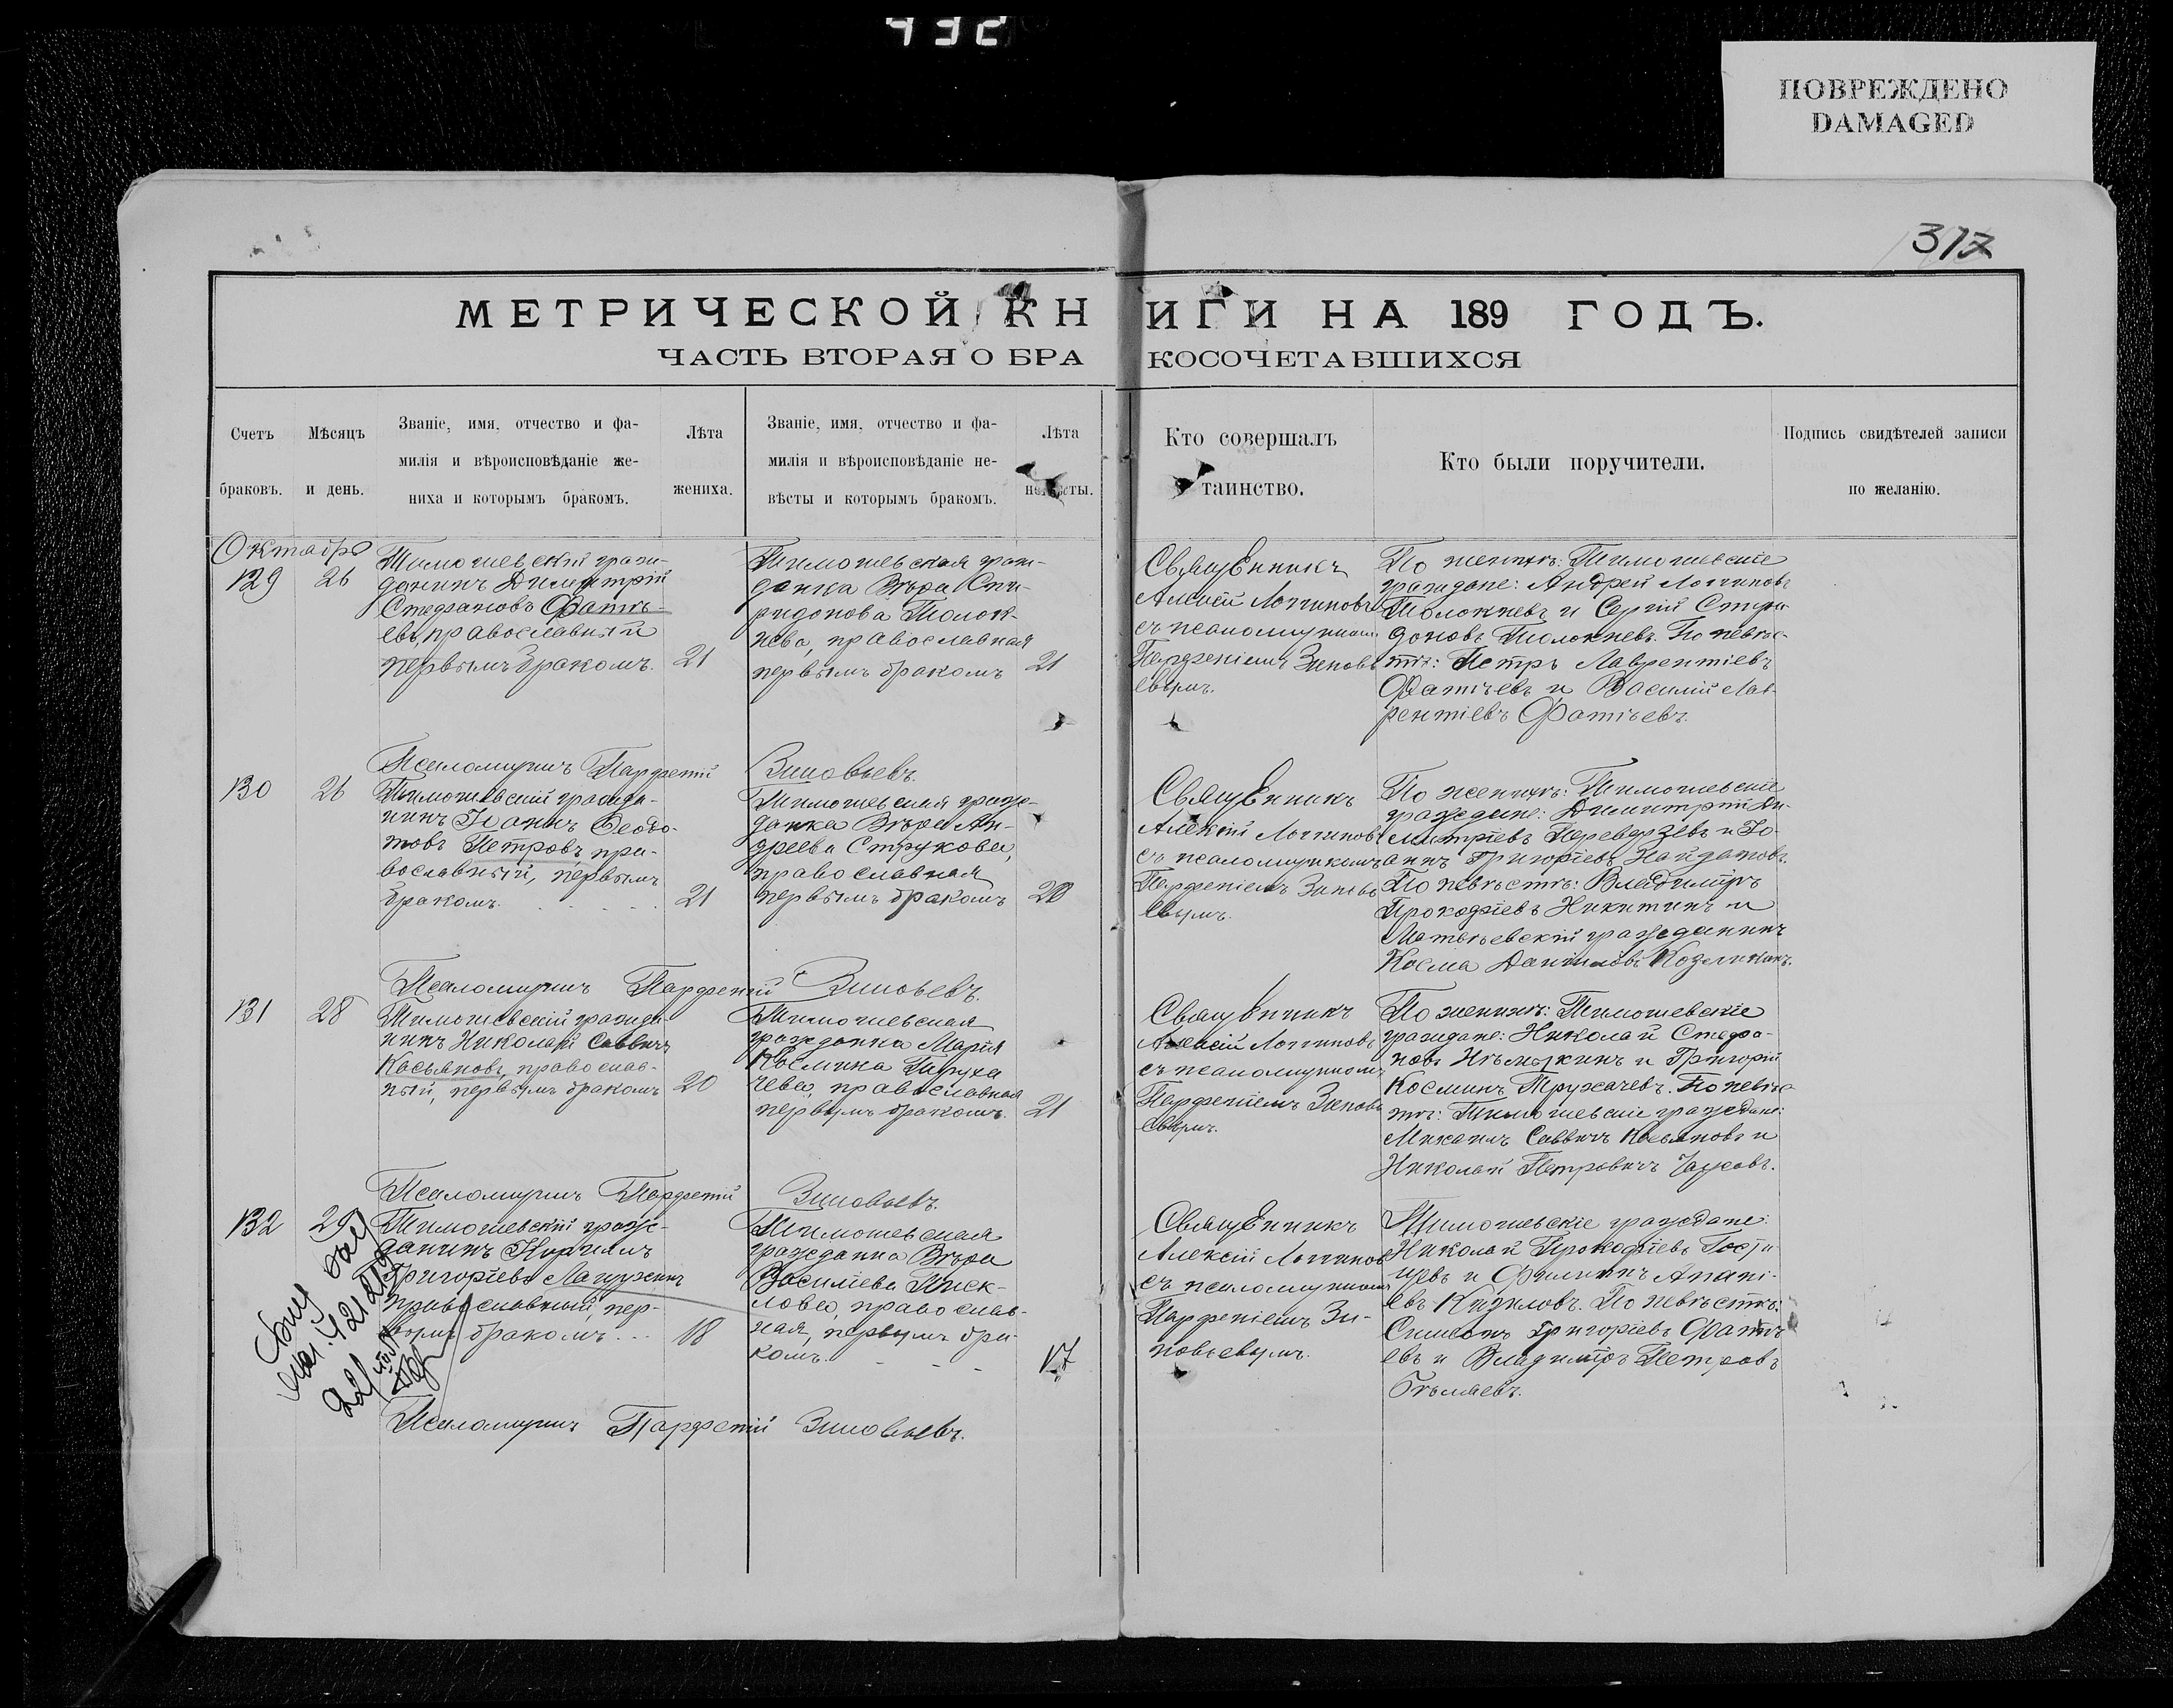 432
ПОВРЕЖДЕНО
DAMAGED
317
МЕТРИЧЕСКОЙ КНИГИ НА 189 ГОДЪ.
ЧАСТЬ ВТОРАЯ О БРАКОСОЧЕТАВШИХСЯ
Счетъ
браковъ.
Мѣсяцъ
и день.
Званіе, имя, отчество и фа-
милія и вѣроисповѣданіе же-
ниха и которымъ бракомъ.
Лѣта
жениха.
Званіе, имя, отчество и фа-
милія и вѣроисповѣданіе не-
вѣсты и которымъ бракомъ.
Лѣта
невѣсты.
Кто совершалъ
таинство.
Кто были поручители.
Подпись свидѣтелей записи
по желанію.
Октабрь
129
26
Тимошевскій граж-
данинъ Димитрій
Стефановъ Фатѣ-
евъ, православный
первымъ бракомъ.
21
Тимошевская граж-
данка Вѣра Спи-
ридонова Толок-
нева, православная
первымъ бракомъ
21
Священникъ
Алексій Логгиновъ
съ псаломщикомъ
Парфеніемъ Зиновь
евымъ.
По женихѣ: Тимошевскіе
граждане: Андрей Логгиновъ
Толокневъ и Сергій Спири
доновъ Толокневъ. По невѣс-
тѣ: Петръ Лаврентіевъ
Фатѣевъ и Василій Лав-
рентіевъ Фатѣевъ.
Псаломщикъ Парфеній Зиновьевъ.
130
26
Тимошевскій гражда-
нинъ Іоаннъ Ѳеодо-
товъ Петровъ, пра-
вославный, первымъ
бракомъ.
21
Тимошевская граж-
данка Вѣра Ан-
дреева Струкова,
православная
первымъ бракомъ
20
Священникъ
Алексій Логгиновъ
съ псаломщикомъ
Парфеніемъ Зиновь
евымъ.
По женихѣ: Тимошевскіе
граждане: Димитрій Ди-
митріевъ и Іо-
аннъ Григоріевъ Найдановъ.
По невѣстѣ: Владиміръ
Прокофіевъ Никитинъ и
Матвѣевскій гражданинъ
Косма Даниловъ
Псаломщикъ Парфеній Зиновьевъ.
131
28
Тимошевскій гражда-
нинъ Николай Саввичъ
Касьяновъ, православ-
ный, первымъ бракомъ
20
Тимошевская
гражданка Марія
Космина Труха
чева, православная
первымъ бракомъ.
21
Священникъ
Алексій Логгиновъ
съ псаломщикомъ
Парфеніемъ Зиновь
евымъ.
По женихѣ: Тимошевскіе
граждане: Николай Стефа-
новъ и Григорій
Косминъ Трухачевъ. По невѣс
тѣ: Тимошевскіе граждане:
Михаилъ Саввичъ Касьяновъ и
Николай Петровичъ
Псаломщикъ Парфеній Зиновьевъ.
132
29
Тимошевскій граж-
данинъ Кириллъ
Григоріевъ Лагружинъ
православный, пер-
вымъ бракомъ...
18
Тимошевская
гражданка Вѣра
Василіева Писк-
лова, православ-
ная, первымъ бра-
комъ.
17
Священникъ
Алексій Логгиновъ
съ псаломщикомъ
Парфеніемъ Зи-
новьевымъ.
Тимошевскіе граждане:
Николай Прокофіевъ
и Филиппъ Анані-
евъ Кизиловъ. По невѣстѣ:
Симеонъ Григоріевъ Фатѣ
евъ и Владиміръ Петровъ
Бѣляевъ.
Псаломщикъ Парфеній Зиновьевъ.